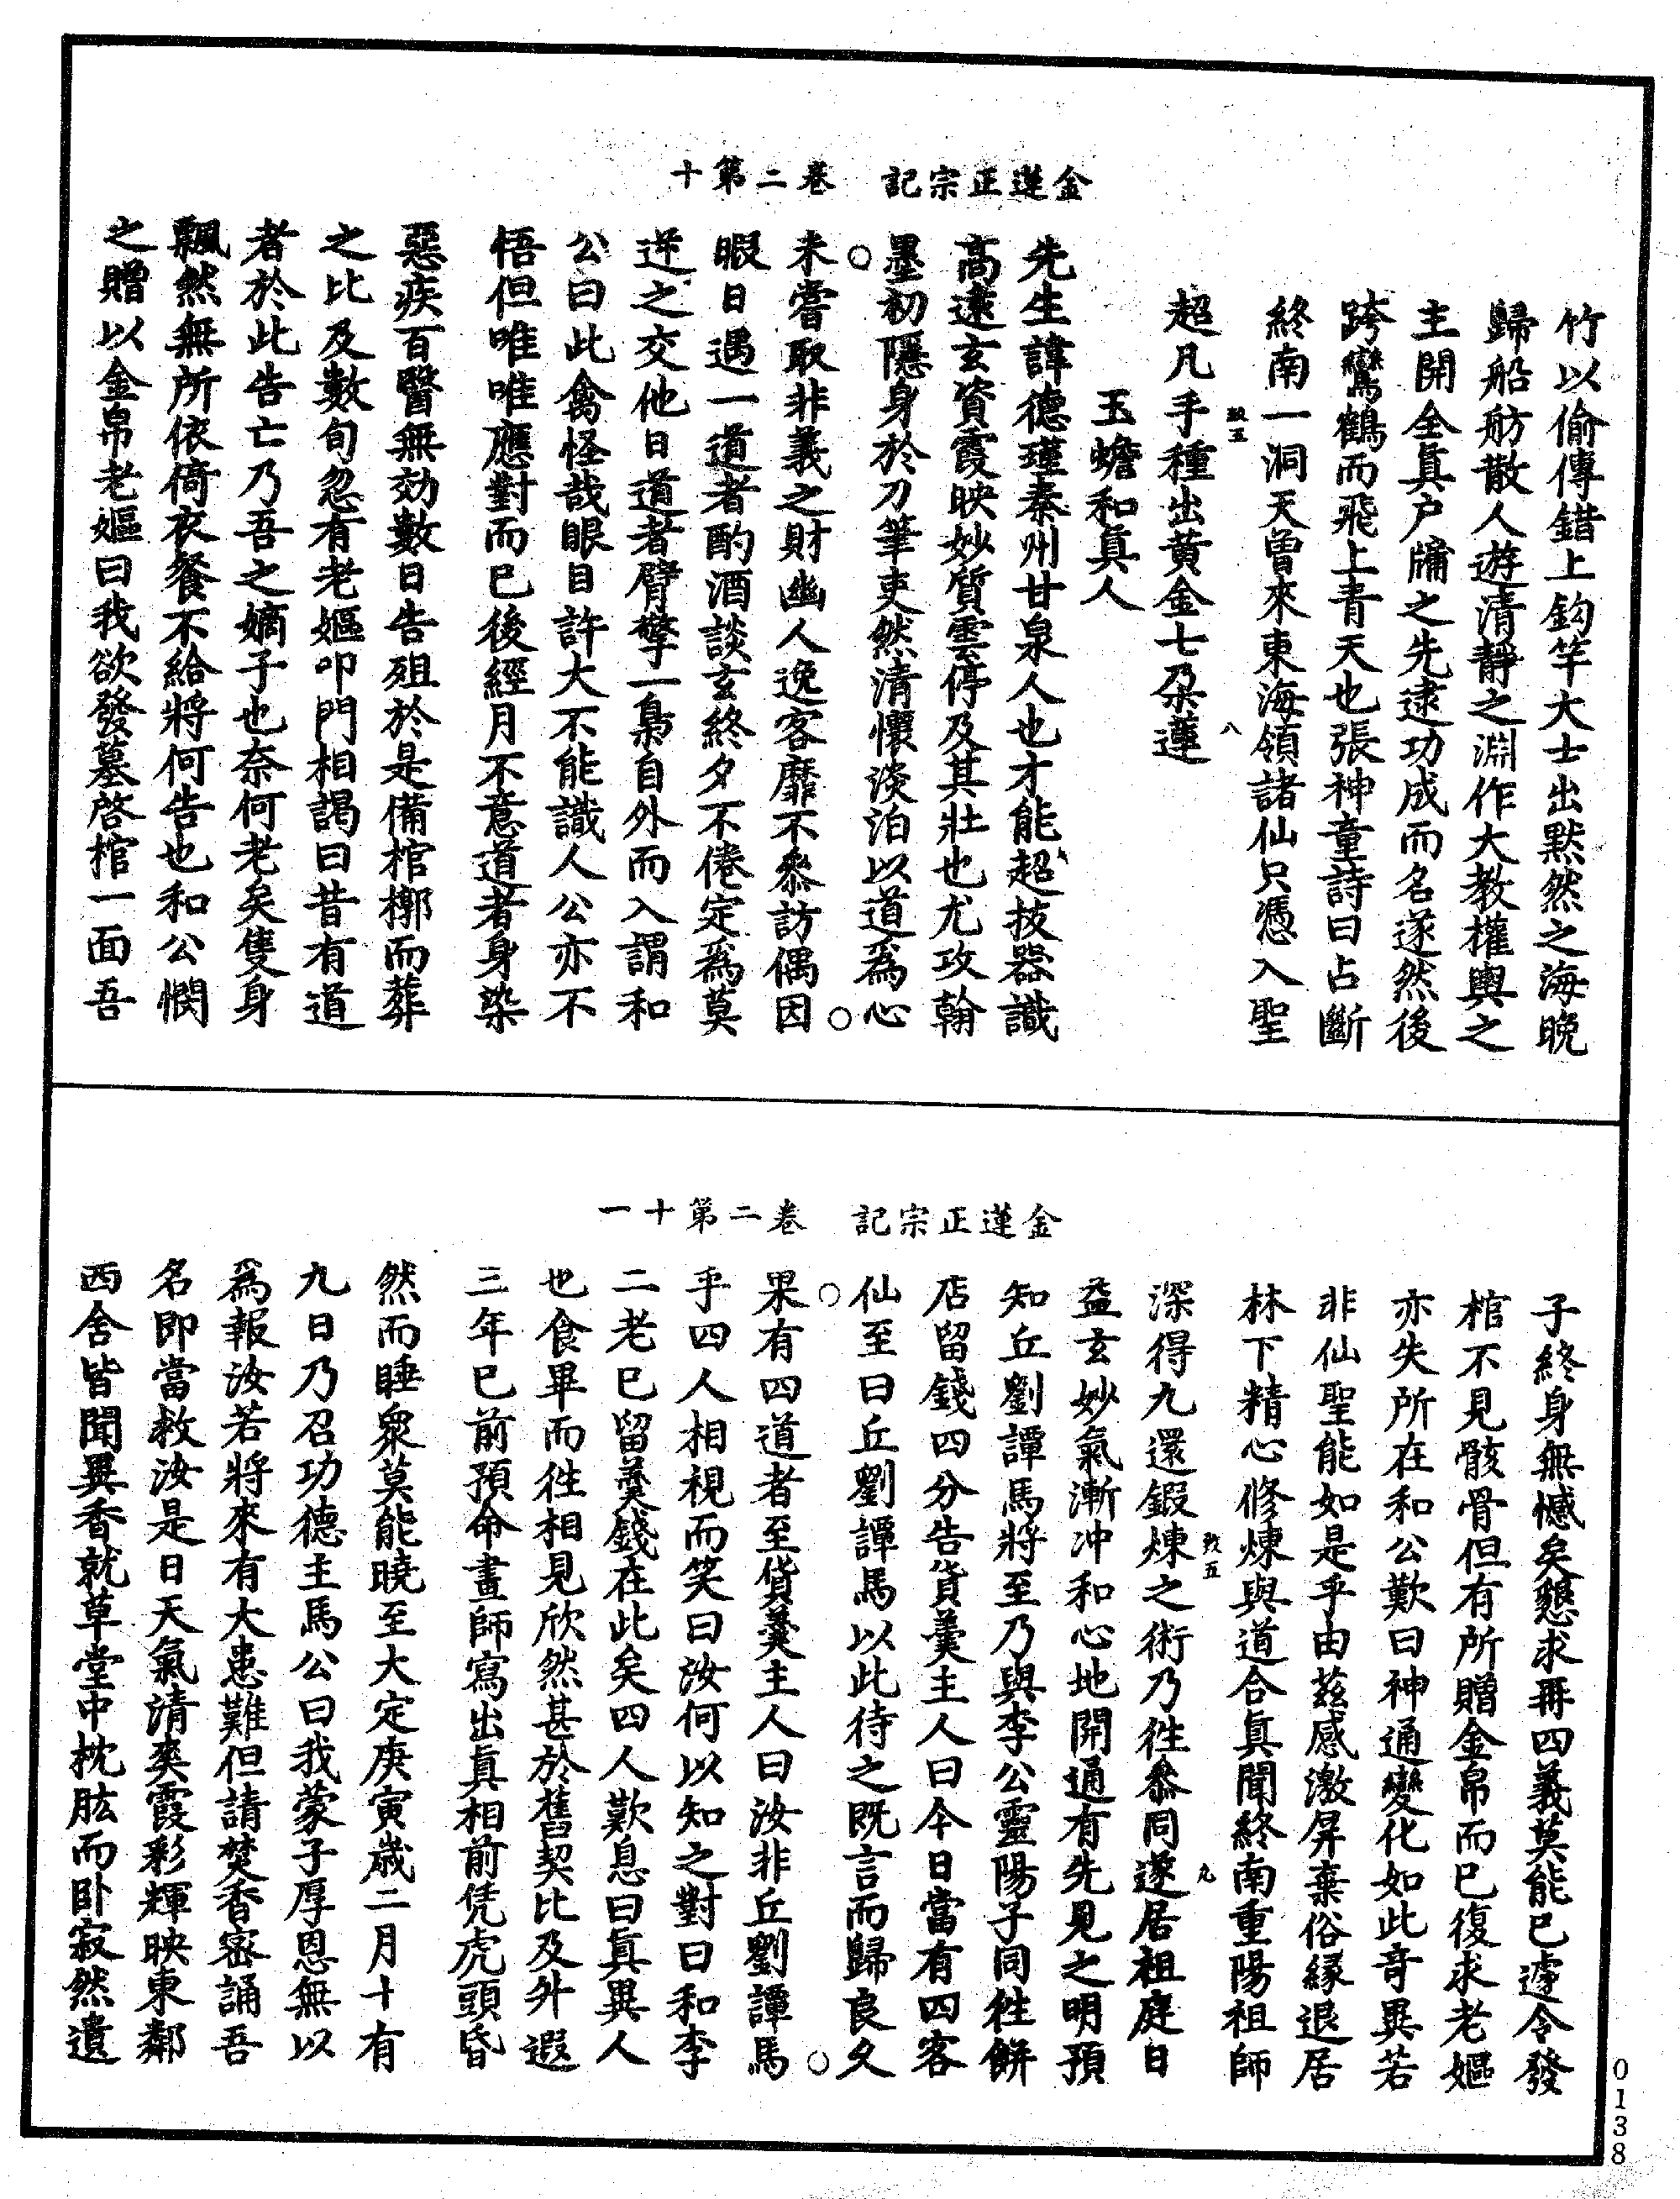 金蓮正宗記　卷二第十
竹以偷傳錯上鈎竿大士出默然之海晚
歸船舫散人遊清靜之淵作大教權輿之
主開全眞户牖之先逮功成而名遂然後
跨鸞鶴而飛上青天也張神童詩曰占斷
終南一洞天曾來東海領諸仙只憑入聖
致五　八
超凡手種出黄金七朶蓮
玉蟾和眞人
先生諱德瑾秦州甘泉人也才能超技器識
高遠玄資霞映妙質雲停及其壯也尤攻翰
墨初隱身於刀筆吏然清懷淡泊以道爲心
○○
未嘗取非義之財幽人逸客靡不叅訪偶因
暇日遇一道者酌酒談玄終夕不倦定爲莫
逆之交他日道者臂擎一梟自外而入謂和
公曰此禽怪哉眼目許大不能識人公亦不
悟但唯唯應對而已後經月不意道者身染
惡疾百醫無効數日告殂於是備棺槨而葬
之比及數旬忽有老嫗叩門相謁曰昔有道
者於此告亡乃吾之嫡子也奈何老矣隻身
飄然無所依倚衣餐不給將何告也和公憫
之贈以金帛老嫗曰我欲發墓啓棺一面吾
金蓮正宗記　卷二第十一
子終身無憾矣懇求再四義莫能已遽令發
棺不見骸骨但有所贈金帛而已復求老嫗
亦失所在和公歎曰神通變化如此竒異若
非仙聖能如是乎由茲感激屏棄俗緣退居
林下精心修煉與道合眞聞終南重陽祖師
致五　九
深得九還鍜煉之術乃徃叅同遂居祖庭日
益玄妙氣漸冲和心地開通有先見之明預
知丘劉譚馬將至乃與李公靈陽子同徃餅
店留錢四分告貨羹主人曰今日當有四客
仙至曰丘劉譚馬以此待之既言而歸良久
○○
果有四道者至貨羹主人曰汝非丘劉譚馬
乎四人相視而笑曰汝何以知之對曰和李
二老已留羹錢在此矣四人歎息曰眞異人
也食畢而徃相見欣然甚於舊契比及升遐
三年已前預命畫師寫出眞相前凭虎頭昏
然而睡衆莫能曉至大定庚寅歲二月十有
九日乃召功德主馬公曰我蒙子厚恩無以
爲報汝若將來有大患難但請焚香密誦吾
名即當救汝是日天氣清爽霞彩輝映東鄰
西舍皆聞異香就草堂中枕肱而卧寂然遺
0138